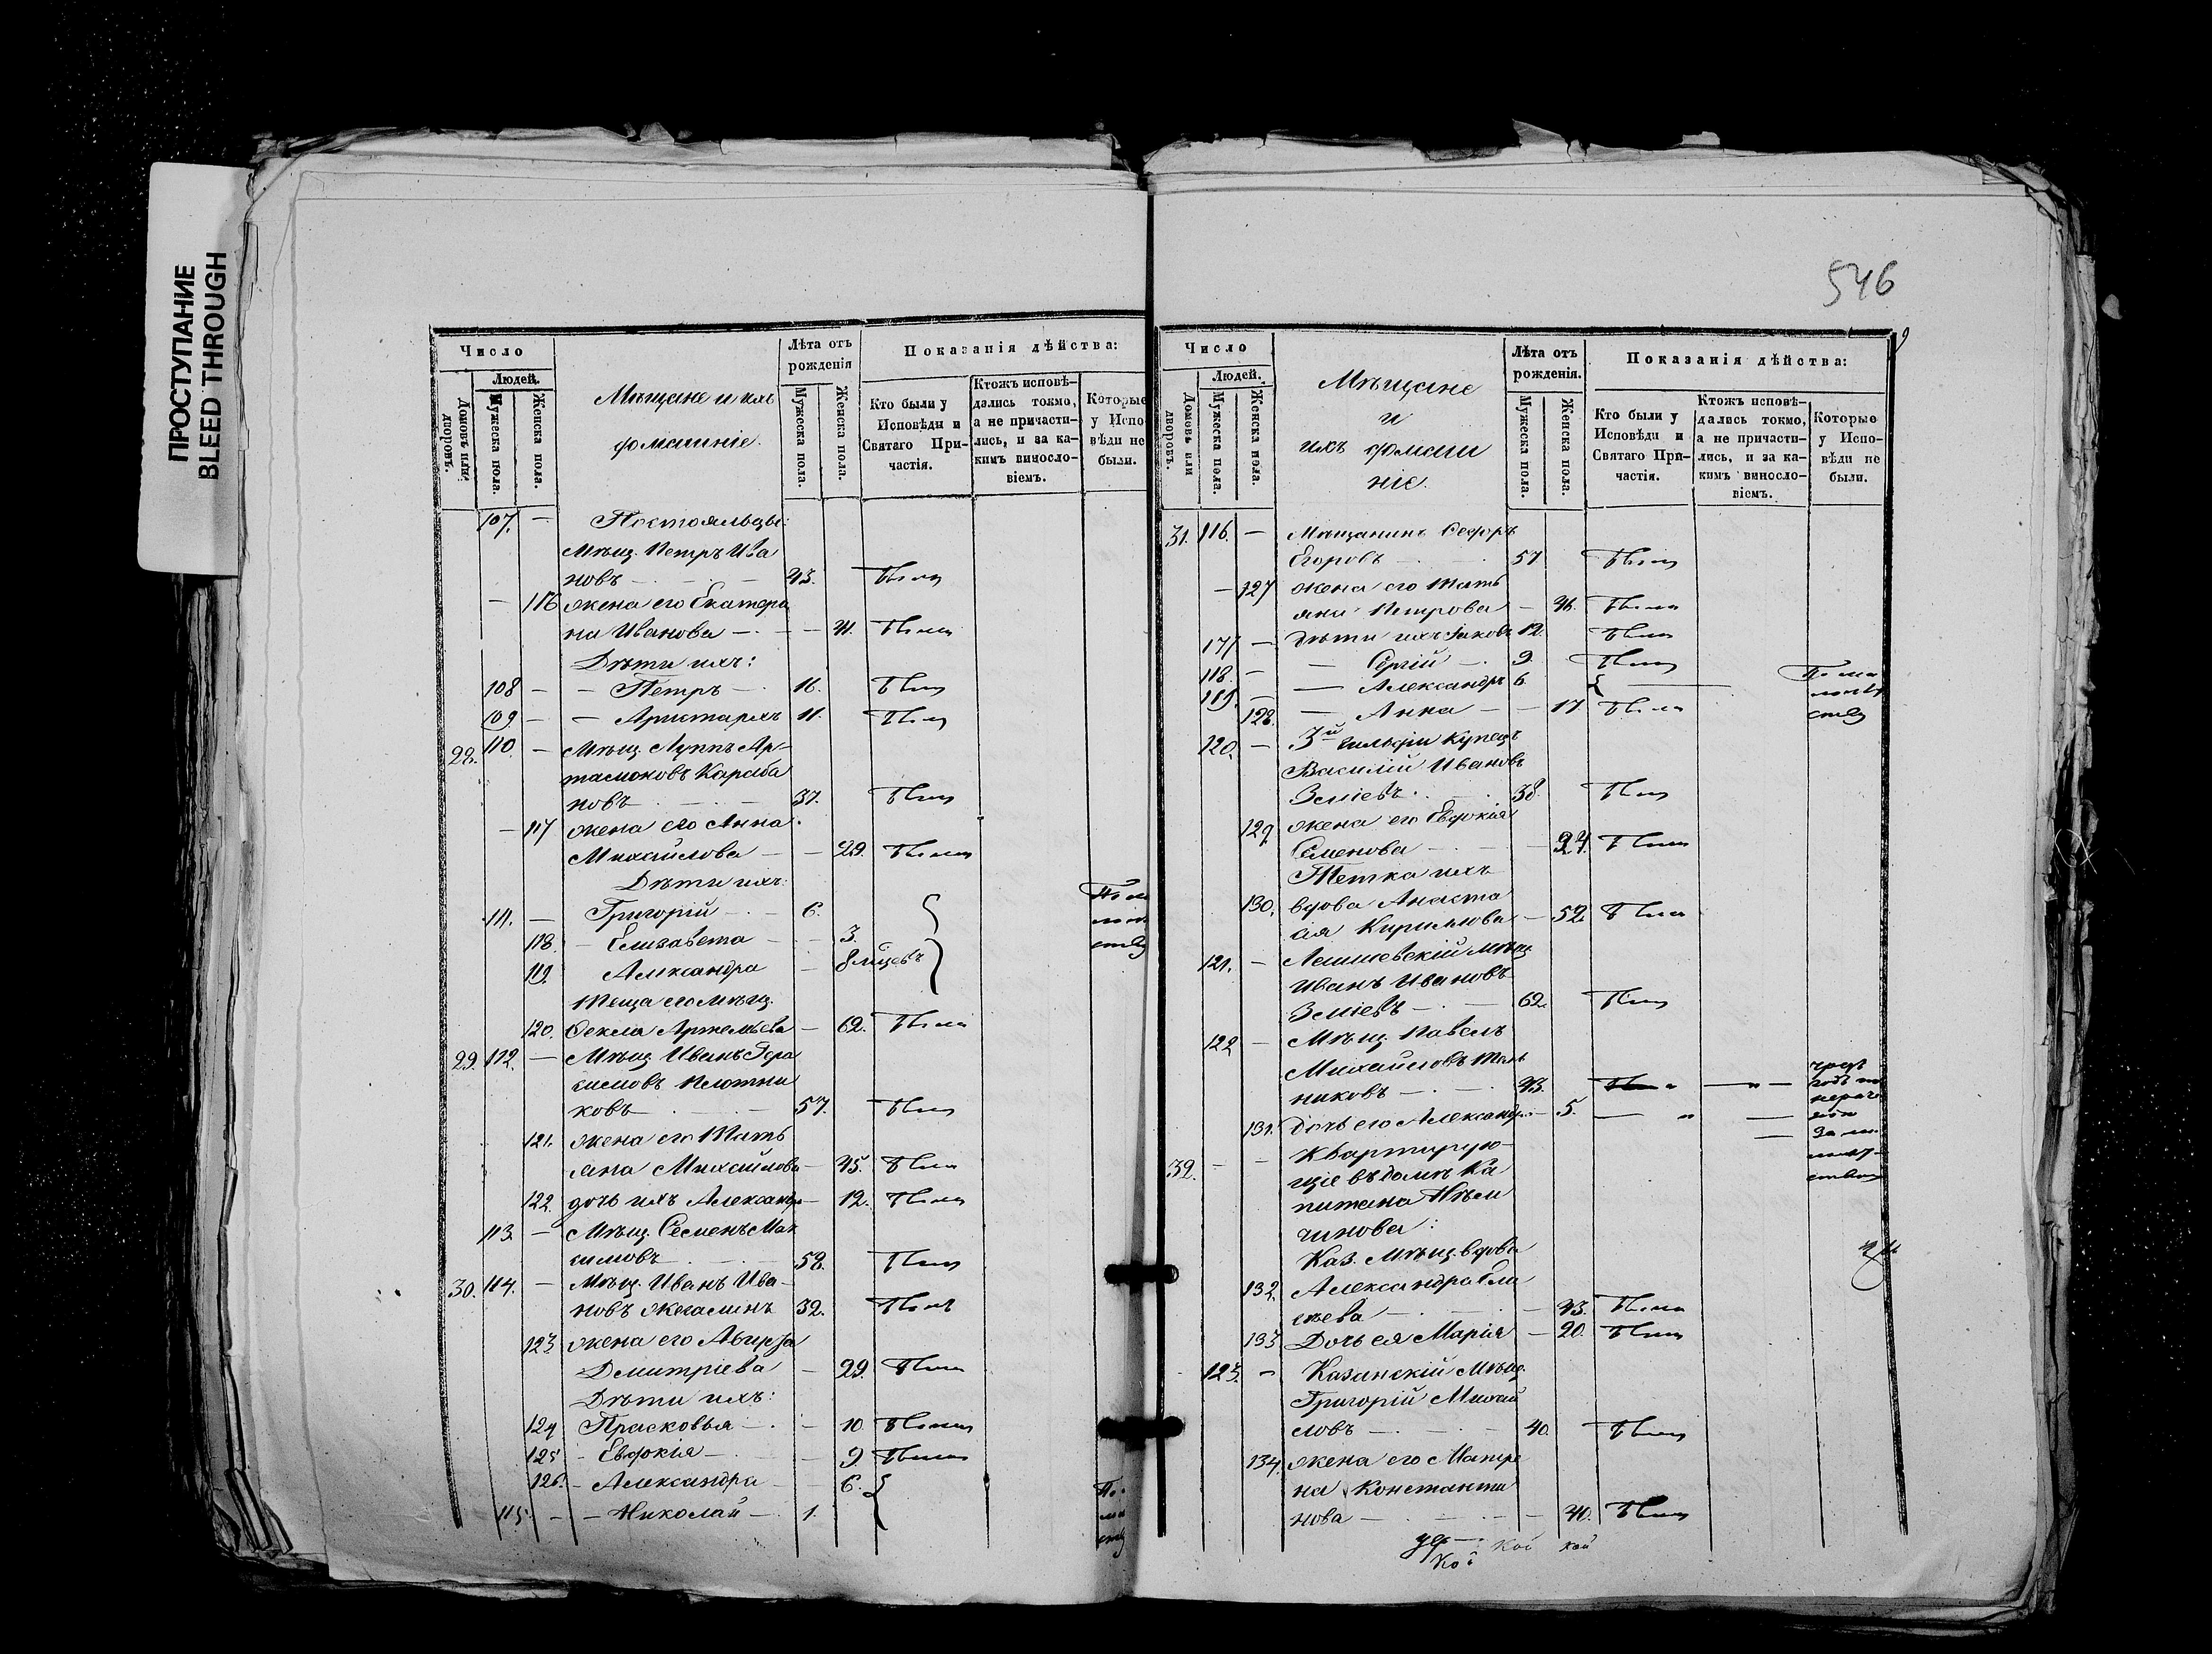 ПРОСТУПАНИЕ
BLEED THROUGH
Число
Людей.
Домовъ или дворовъ.
Мужеска пола.
Женска пола.
Мѣщане и ихъ
домашніе.
Лѣта отъ
рожденія
Мужеска пола.
Женска пола.
Показанія дѣйства:
Кто были у
Исповѣди и
Святаго При-
частія.
Ктожъ исповѣ-
дались токмо,
а не причасти-
лись, и за ка-
кимъ винословіемъ.
Которые
у Испо
вѣди не
были.
107. — Постояльцы:
Мѣщ. Петръ Ива
новъ — 43. Былъ
— 116 жена его Екатери
на Иванова — — 41. Была
Дѣти ихъ:
108 — — Петръ — 16. Былъ
109 — — Аристархъ 11. Былъ
28. 110. — Мѣщ. Луппъ Ар-
тамоновъ Караба
новъ — 37. Былъ
— 117 жена его Анна
Михайлова — — 29. Была
Дѣти ихъ:
111. — Григорій — 6.
По ма
лолѣт
ству
118. — Елизавета — 3.
119. Александра — 8 мѣсяцевъ
Теща его мѣщ.
120. Фекла Артемьева — 62. Была
29. 112. — Мѣщ. Иванъ Гера
симовъ Плотни
ковъ — 57. Былъ
121. жена его Тать
яна Михайлова — 45. Была
122. дочь ихъ Александра — 12. Была
113. — Мѣщ. Семенъ Мак
симовъ 52. Былъ
30. 114. — Мѣщ. Иванъ Ива-
новъ Жегалинъ 32. Былъ
123 жена его
Дмитріева — 29. Была
Дѣти ихъ:
124 Прасковья — — 10. Была
125 - Евдокія — — 9. Была
126. - Александра — 6.
115. — — Николай — 1.
По
ма
ству
546
Число
Людей.
Домовъ или дворовъ.
Мужеска пола.
Женска пола.
Мѣщане
и
ихъ домаш
ніе.
Лѣта отъ
рожденія.
Мужеска пола.
Женска пола.
Показанія дѣйства:
Кто были у
Исповѣди и
Святаго При-
частія.
Ктожъ исповѣ-
дались токмо,
а не причасти-
лись, и за ка-
кимъ винословіемъ.
Которые
у Испо-
вѣди не
были.
31. 116. — Мѣщанинъ Ѳедоръ
Егоровъ — 57 Былъ
— 127 жена его Тать
яна Петрова — 46. Была
117 — Дѣти ихъ: Іаковъ 12. Былъ
118. — — Сергій — 9. Былъ
119. — — Александръ 6.
По ма
лолѣт
ству
128. — Анна — — 17. Была
120. — 3й гильдіи купецъ
Василій Ивановъ
Зміевъ. 38. Былъ
129. жена его Евдокія
Семенова — 24. Была
Тетка ихъ
130. вдова Анаста
сія Кирилова — 52 Была
121. — Лаишевскій мѣщ.
Иванъ Ивановъ
Зміевъ — 62. Былъ
122 — Мѣщ. Павелъ
Михайловъ
никовъ — 43.
131. дочь его Александра — 5.
32. — — Квартирую-
щіе въ домѣ Ка
питана
чинова:
Каз. Мѣщ. вдова
132. Александра
— 43. Была
133 Дочь ея Марія — 20. Была
123. — Казанскій Мѣщ.
Григорій Михай
ловъ — 40. Былъ
134. жена его Матре
на Константи
нова — — 40. Была
кой кой